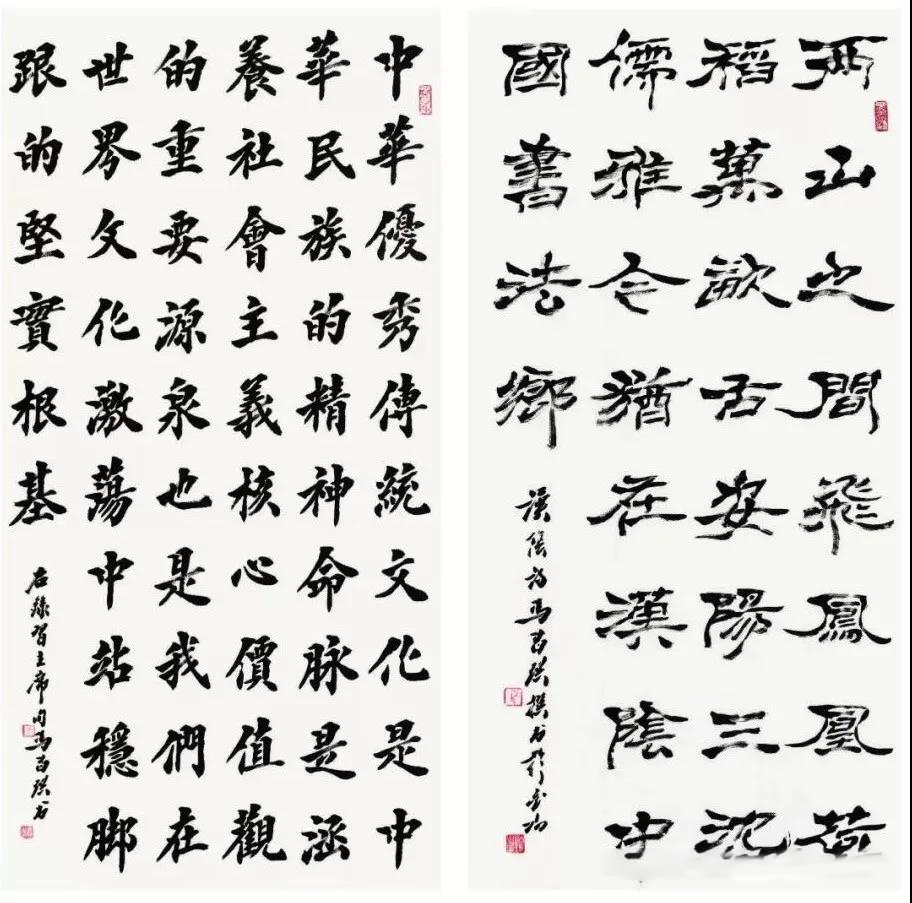 两山之間飛鳳凰荷
稻萬畝古安陽三沈
儒雅今猶在漢陰中
國書法鄉
漢陰詩馬百琪撰書於
中華優秀傳統文化是中
華民族的精神命脉是涵
養社會主義核心價值觀
的重要源泉也是我們在
世界文化激蕩中站穩脚
跟的堅實根基
右錄習主席句馬百琪書